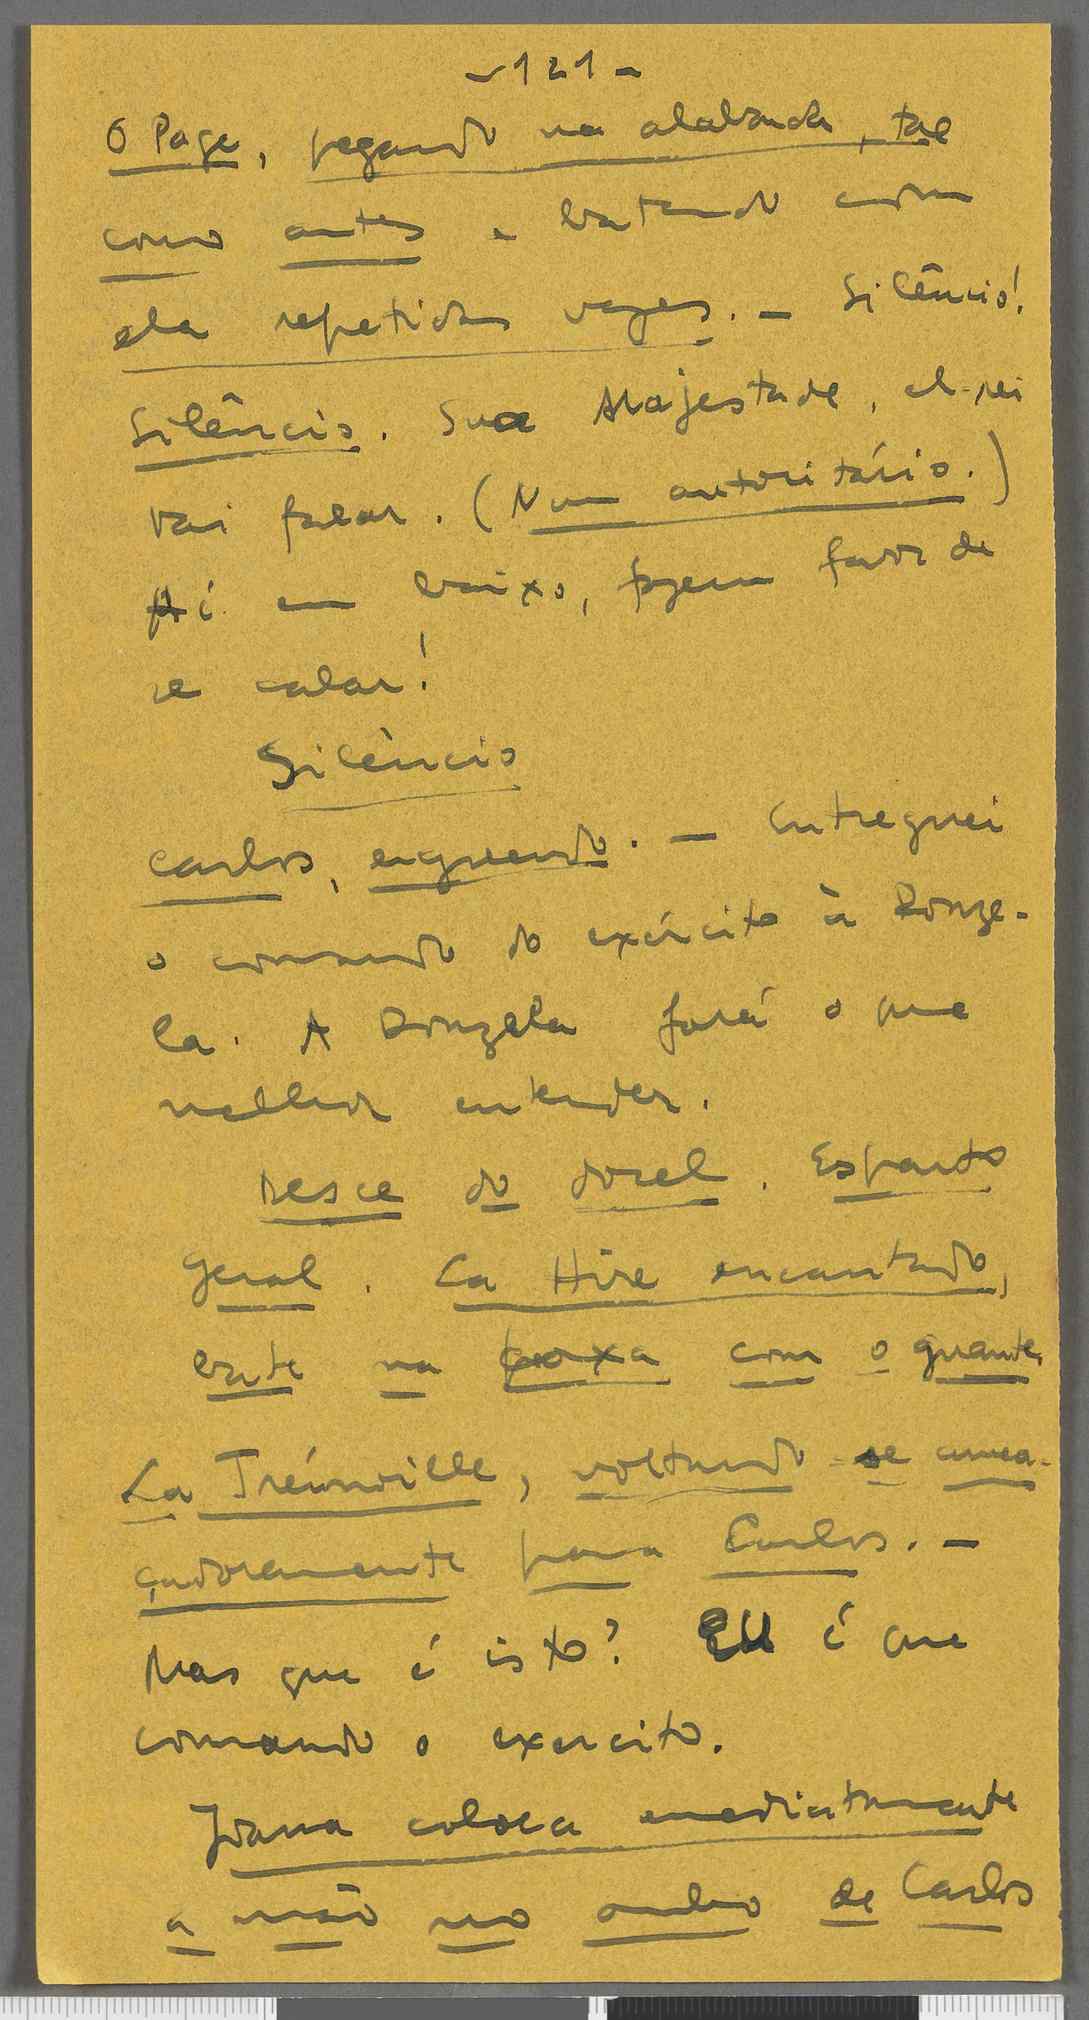 -121-
O Page, pegando na alabarda, tal
como antes e batendo com
ela repetidas vezes. - Silêncio!
Silêncio. Sua Majestade, el-rei
vai falar. (Num autoritário.)
Aí em baixo, fazem favor de
se calar!
Silêncio
Carlos, erguendo. - Entreguei
o comando do exército à Donze-
la. A Donzela fará o que
melhor entender.
Desce do docel. Espanto
geral. La Hire encantado,
bate na coxa com o guante.
La Trémoille, voltando-se amea-
çadoramente para Carlos. -
Mas que é isto? Eu é que
comando o exercito.
Joana coloca imediatamente
a mão no ombro de Carlos